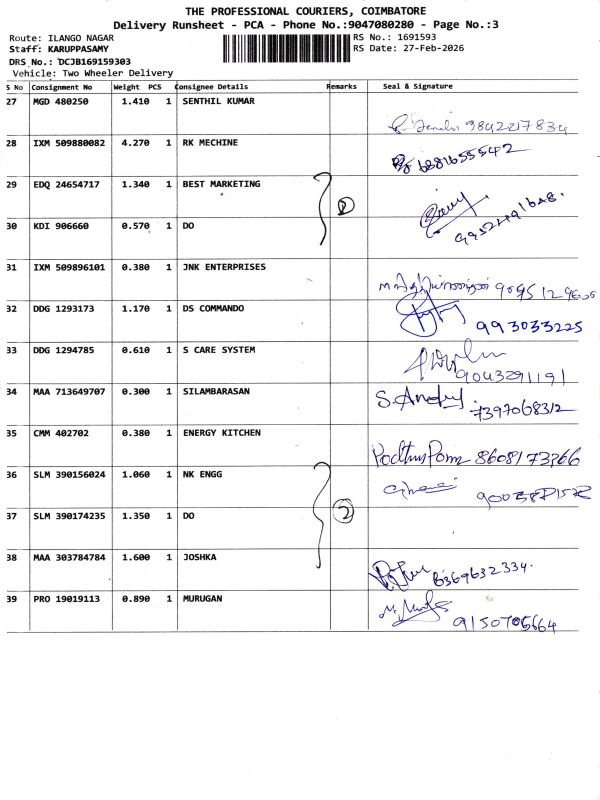 THE PROFESSIONAL COURIERS, COIMBATORE
Delivery Runsheet - PCA - Phone No.:9047080280 - Page No.:3
Route: ILANGO NAGAR RS No.: 1691593
Staff: KARUPPASAMY RS Date: 27-Feb-2026
DRS No.: DCJB169159303
Vehicle: Two Wheeler Delivery
S No Consignment No Weight PCS Consignee Details Remarks Seal & Signature
27 MGD 480250 1.410 1 SENTHIL KUMAR
9842217834
28 IXM 509880082 4.270 1 RK MECHINE
29 EDQ 24654717 1.340 1 BEST MARKETING
30 KDI 906660 0.570 1 DO
31 IXM 509896101 0.380 1 JNK ENTERPRISES
32 DDG 1293173 1.170 1 DS COMMANDO
993033225
33 DDG 1294785 0.610 1 S CARE SYSTEM
9043291191
34 MAA 713649707 0.300 1 SILAMBARASAN
7397068312
35 CMM 402702 0.380 1 ENERGY KITCHEN
8608173366
36 SLM 390156024 1.060 1 NK ENGG
37 SLM 390174235 1.350 1 DO
2
38 MAA 303784784 1.600 1 JOSHKA
8369632334.
39 PRO 19019113 0.890 1 MURUGAN
9150705664